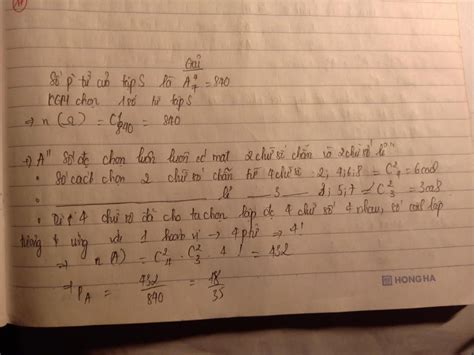 Giải
Số p tử của tập S là A⁴₇ = 840
KGM chọn 1 số từ tập S
⇒ n(Ω) = C¹₈₄₀ = 840
→ A" Số đc chọn luôn luôn có mặt 2 chữ số chẵn và 2 chữ số lẻ"
• Số cách chọn 2 chữ số chẵn từ 4 chữ số: 2; 4; 6; 8 = C²₄ = 6 cách
• lẻ 3 1; 5; 7 = C²₃ = 3 cách
• Từ 4 chữ số đã cho ta chọn lập đc 4 chữ số ≠ nhau, số cách lập
tương ứng với 1 hoán vị → 4 ptử → 4!
⇒ n(A) = C²₄ . C²₃ . 4! = 432
⇒ P_A = 432/840 = 18/35
HONG HA